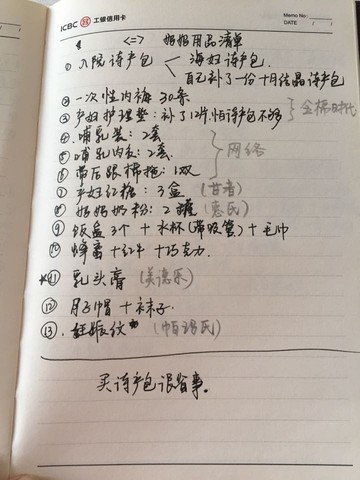 ICBC 工银信用卡
Memo No:
DATE / /
<二> 妈妈用品清单
① 入院待产包 海妇待产包.
自己补了一份十月结晶待产包
② 一次性内裤 30条
③ 产妇护理垫: 补了12片. 怕待产包不够 全棉时代
④ 哺乳装: 2套
⑤ 哺乳内衣: 2套. 网络
⑥ 带后跟棉拖: 1双
⑦ 产妇红糖: 3盒 (甘者)
⑧ 妈妈奶粉: 2罐 (惠氏)
⑨ 饭盒3个 + 水杯(带吸管) + 毛巾
⑩ 蜂蜜 + 红牛 + 巧克力.
★⑪ 乳头膏 (美德乐)
⑫ 月子帽 + 袜子.
⑬ 妊娠纹 (帕玛氏)
买待产包很省事。